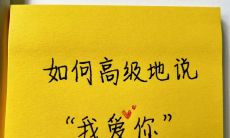 如何高级地说
“我爱你”